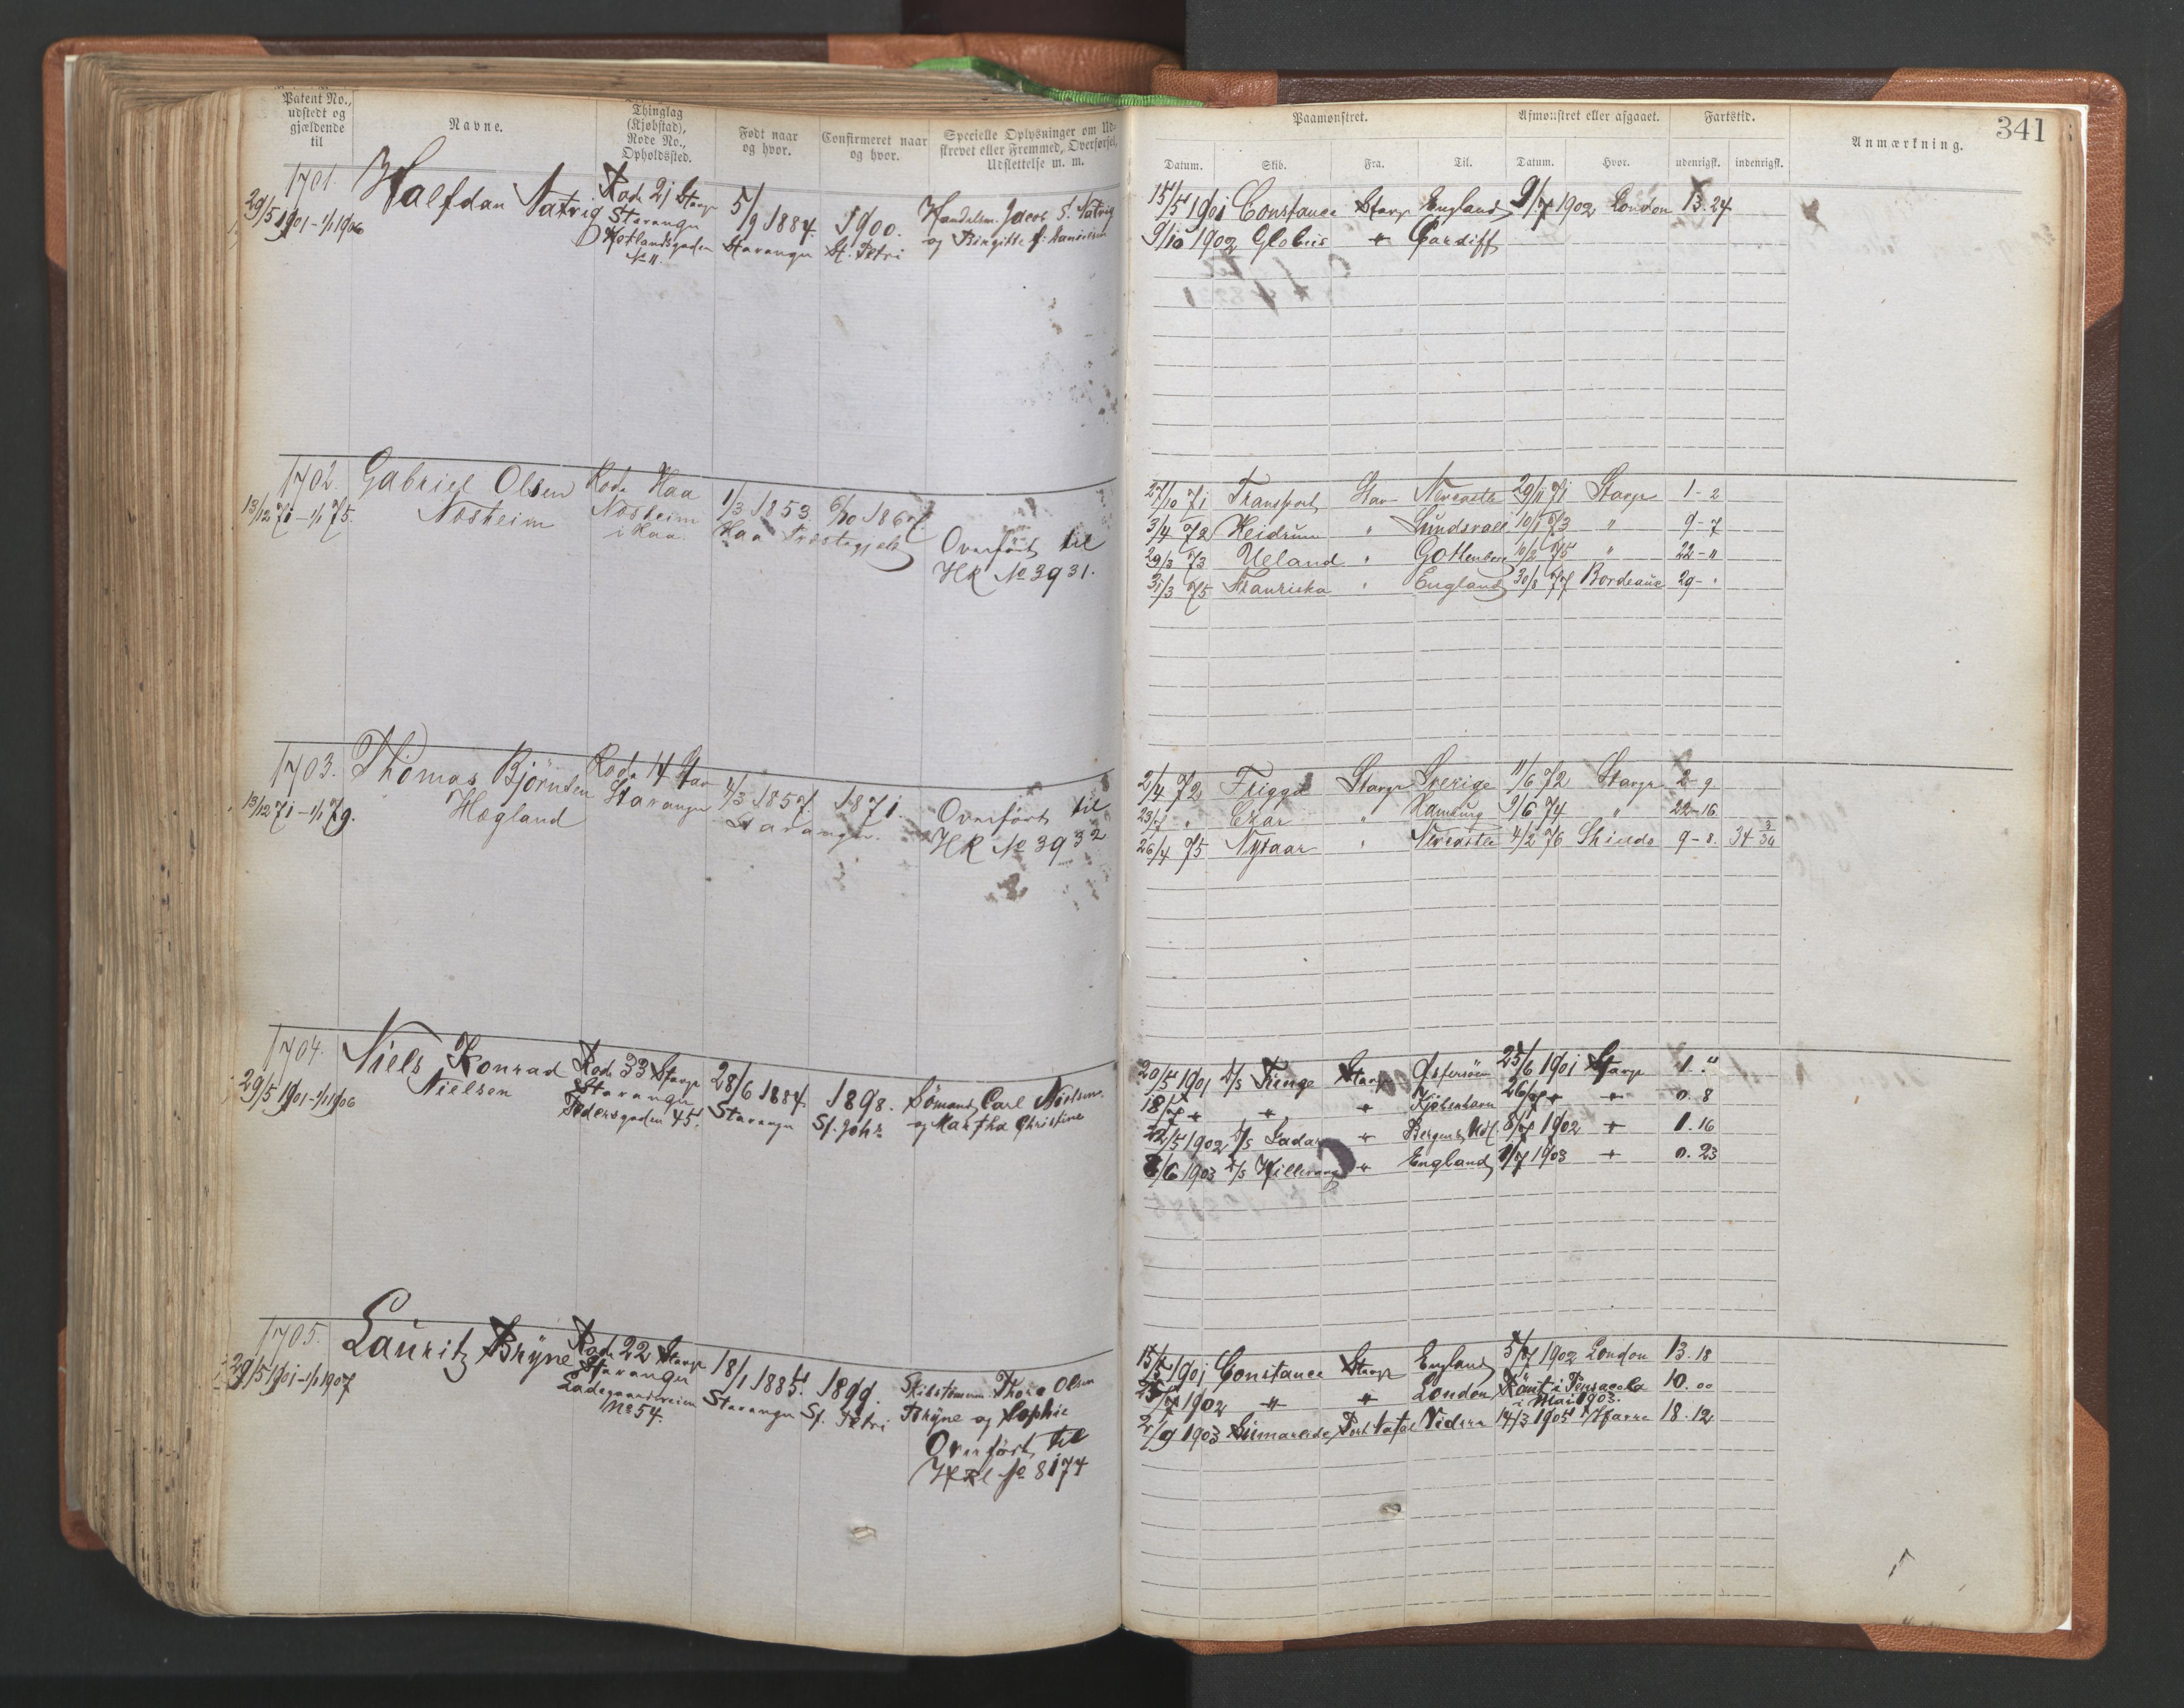 Patent No., udstedt og gjældende til
Navne.
Thinglag (Kjøbstad), Rode No., Opholdssted.
Født naar og hvor.
Confirmeret naar og hvor.
Specielle Oplysninger om Udskrevet eller Fremmed, Overførsel, Udslettelse m. m.
Paamønstret.
Afmønstret eller afgaaet.
Fartstid.
Anmærkning.
341
Datum. Skib. Fra. Til. Datum. Hvor. udenrigsk. indenrigsk.
1701. Halfdan Natvig Rode 21 Stavgr 5/9 1884. 1900. Handelsm. Jacob S. Natvig
29/5 1901 - 1/1 1906 Stavanger Stavanger St. Petri og Birgitte f. Danielsen
Hetlandsgaden
No 11.
15/5 1901 Constance Stavgr England 9/7 1902 London 13. 24
9/10 1902 Globus " Cardiff
1702. Gabriel Olsen Rode Haa 1/3 1853 6/10 1867
13/12 71 - 1/1 75. Nosheim Nosheim Haa Prestegjeld
i Haa.
Overført til
HR No 3931.
27/10 71 Transport Stav Newcastle 29/11 71 Stavgr 1 - 2
3/4 72 Heidrun " Sundsvall 10/1 73 " 9 - 7
29/3 73 Ueland " Gothenborg 10/2 75 " 22 - "
31/3 75 " England 30/8 77 Bordeaux 29 - "
1703. Thomas Björnsen Rode 14 Stav 4/3 1857 1871.
13/12 71 - 1/1 79. Høgland Stavanger Stavanger.
Overført til
HR No 3932
2/4 72 Frigga Stavgr Sverige 11/6 72 Stavgr 2 - 9.
23/7 " " Hamburg 9/6 74 " 22 - 16.
26/4 75 Nytaar " Newcastle 4/2 76 Shields 9 - 8. 34 3/30
1704. Niels Konrad Rode 33 Stavgr 28/6 1884. 1898. Sömand Carl Nielsen
29/5 1901 - 1/1 1906 Nielsen Stavanger Stavanger St. Johs og Martha Christine
Pedersgaden 45.
20/5 1901 D/S Östersöen 25/6 1901 Stavgr 1. "
18/7 " " " Kjöbenhavn 26/7 " " 0. 8
22/5 1902 D/S " 8/7 1902 " 1. 16
8/6 1903 D/S " England 1/7 1903 " 0. 23
1705. Lauritz Bryne Rode 22 Stavgr 18/1 1885. 1899. Skibstömm. Thore Olsen
29/5 1901 - 1/1 1907 Stavanger Stavanger St. Petri Bryne og Sophie
Ladegaardsveien
No 54.
Overført til
HRl No 8174
15/5 1901 Constance Stavgr England 5/7 1902 London 13. 18
25/7 1902 " " London Römt i Pensacola 10. 00
i Mai 1903.
2/9 1903 Port Natal 14/3 1905 Havre 18. 12